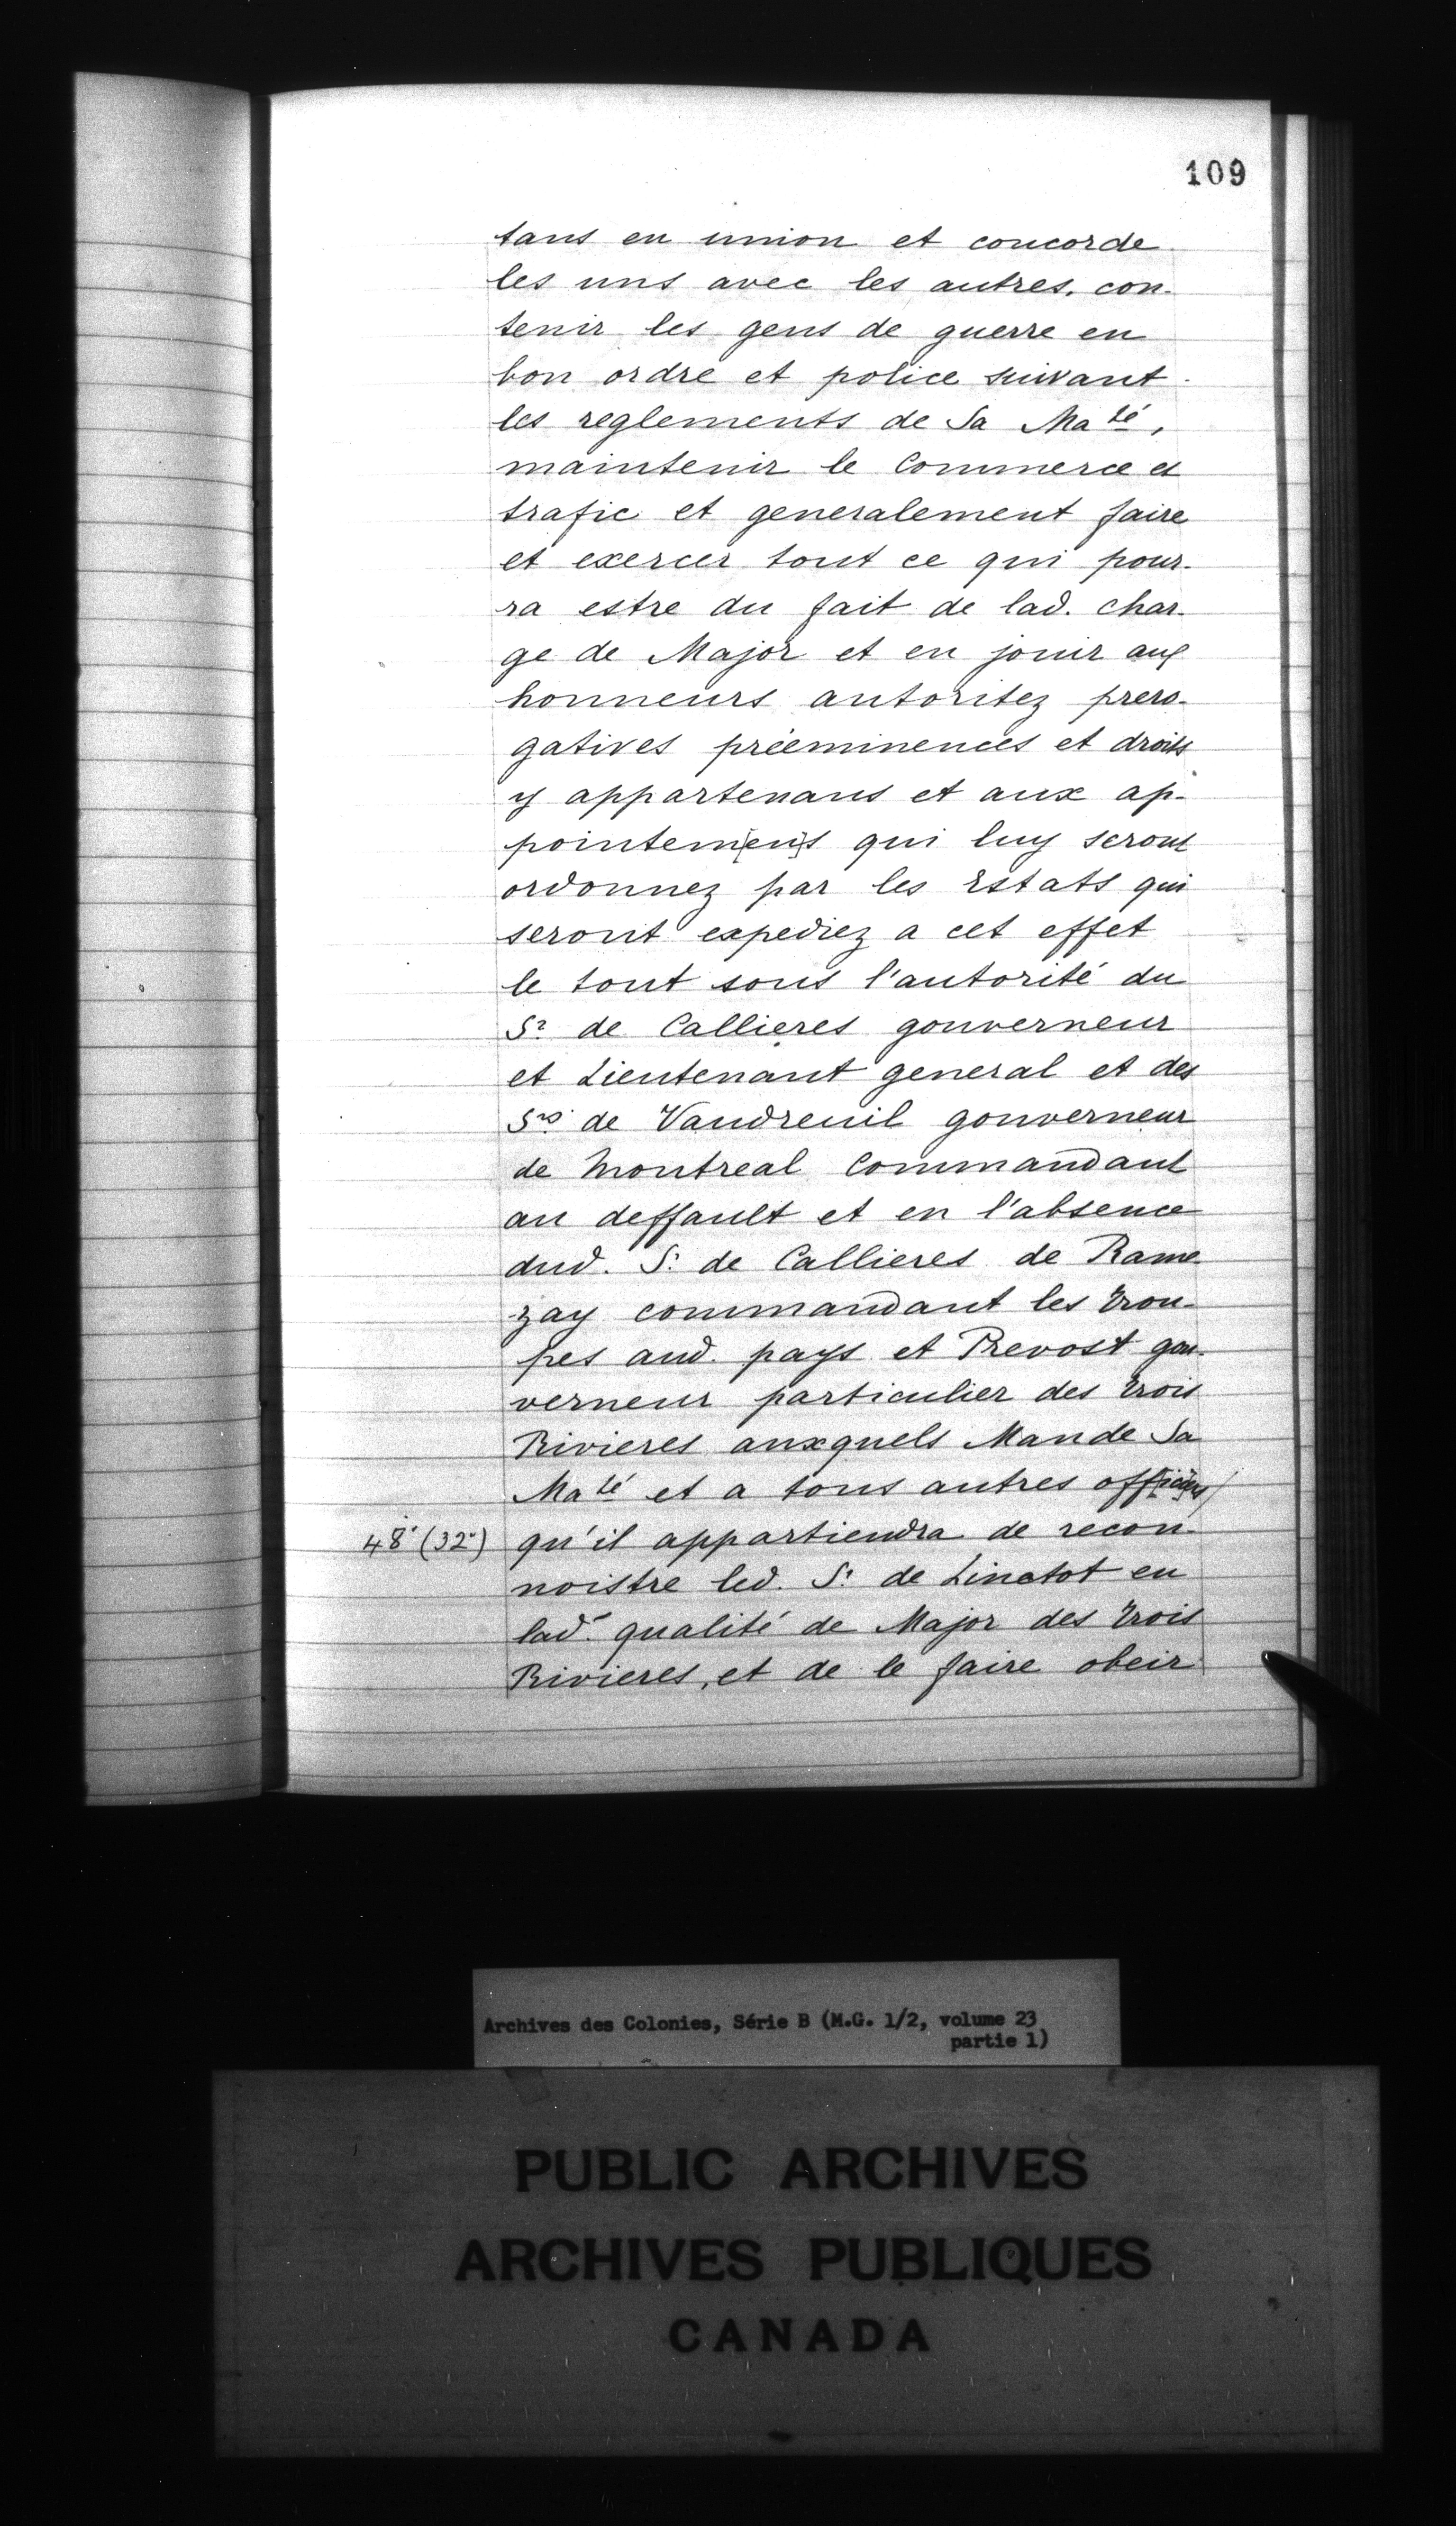 109
tans en union et concorde
les uns avec les autres. con-
tenir les gens de guerre en
bon ordre et police suivant
les reglements de Sa Ma té,
maintenir le Commerce et
trafic et generalement faire
et exercer tout ce qui pour-
ra estre du fait de lad. char-
ge de Major et en jouir aux
honneurs autoritez prero-
gatives prééminences et droits
y appartenans et aux ap-
pointem[en]s qui luy seront
ordonnez par les Estats qui
seront expediez a cet effet
le tout sous l'autorité du
Sr de Callieres gouverneur
et Lieutenant general et des
Srs de Vaudreuil gouverneur
de Montreal Commandant
au deffault et en l'absence
dud. Sr de Callieres de Rame
zay commandant les trou-
pes aud. pays et Prevost gou-
verneur particulier des trois
Rivieres auxquels Mande Sa
Ma té et a tous autres off[icie]rs
48 (32) qu'il appartiendra de recon-
noistre led. Sr de Linctot en
lad. qualité de Major des trois
Rivieres, et de le faire obeir
Archives des Colonies, Série B (M.G. 1/2, volume 23
partie 1)
PUBLIC ARCHIVES
ARCHIVES PUBLIQUES
CANADA